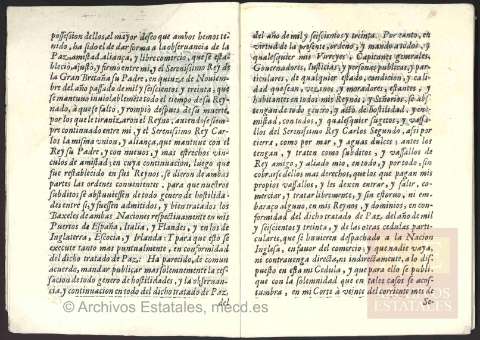 possession dellos, el mayor deseo que ambos hemos te-
nido, ha sido el de dar forma a la obseruancia de la
Paz, amistad, aliança, y libre comercio, que se esta-
bleciò, ajustò, y firmò entre mi, y el Serenissimo Rey de
la Gran Bretaña su Padre, en quinze de Nouiem-
bre del año passado de mil y seiscientos y treinta, que
se mantuuo inuiolablemente todo el tiempo de su Rey-
nado, à que se faltò, y rompiò despues de su muerte,
por los que le tiranizaron el Reyno, auiendo siem-
pre continuado entre mi, y el Serenissimo Rey Car-
los la misma vnion, y aliança, que mantuue con el
Rey su Padre, y con nueuos, y mas estrechos vincu-
los de amistad; en cuya continuacion, luego que
fue restablecido en sus Reynos, se dieron de ambas
partes las ordenes conuenientes, para que nuestros
subditos se abstuuiessen de todo genero de hostilida-
des entre si, y fuessen admitidos, y bien tratados los
Baxeles de ambas Naciones respectiuamente en mis
Puertos de España, Italia, y Flandes, y en los de
Inglaterra, Escocia, y Irlanda: Y para que esto se
execute tanto mas puntualmente, en conformidad
del dicho tratado de Paz; Ha parecido, de comun
acuerdo, mandar publicar mas solemnemente la ces-
sacion de todo genero de hostilidades, y la obseruan-
cia, y continuacion en todo del dicho tratado de Paz,
del
del año de mil y seiscientos y treinta. Por tanto, en
virtud de la presente, ordeno, y mando a todos, y
qualesquier mis Virreyes, Capitanes generales,
Gouernadores, Iusticias, y personas publicas, y par-
ticulares, de qualquier estado, condicion, y cali-
dad que sean, vezinos, y moradores, estantes, y
habitantes en todos mis Reynos, y Señorios, se abs-
tengan de todo genero, y acto de hostilidad, y ene-
mistad, con todos, y qualesquier sugetos, y vassa-
llos del Serenissimo Rey Carlos Segundo, assi por
tierra, como por mar, y aguas dulces; antes los
tengan, y traten como subditos, y vassallos de
Rey amigo, y aliado mio, en todo, y por todo, sin
cobrarse dellos mas derechos, que los que pagan mis
propios vassallos, y les dexen entrar, y salir, co-
merciar, y tratar libremente, y sin estoruo, ni em-
baraço alguno, en mis Reynos, y dominios, en con-
formidad del dicho tratado de Paz, del año de mil
y seiscientos y treinta, y de las otras cedulas particu-
lares, que se huuieren despachado a la Nacion
Inglesa, en fauor del comercio, y que nadie vaya,
ne contrauenga directa, ni indirectamente, a lo dis-
puesto en esta mi Cedula, y que para ello se publi-
que con la solemnidad que en tales casos se acos-
tumbra, en mi Corte à veinte del corriente mes de
Se-
© Archivos Estatales, mecd.es
ARCHIVOS
ESTATALES